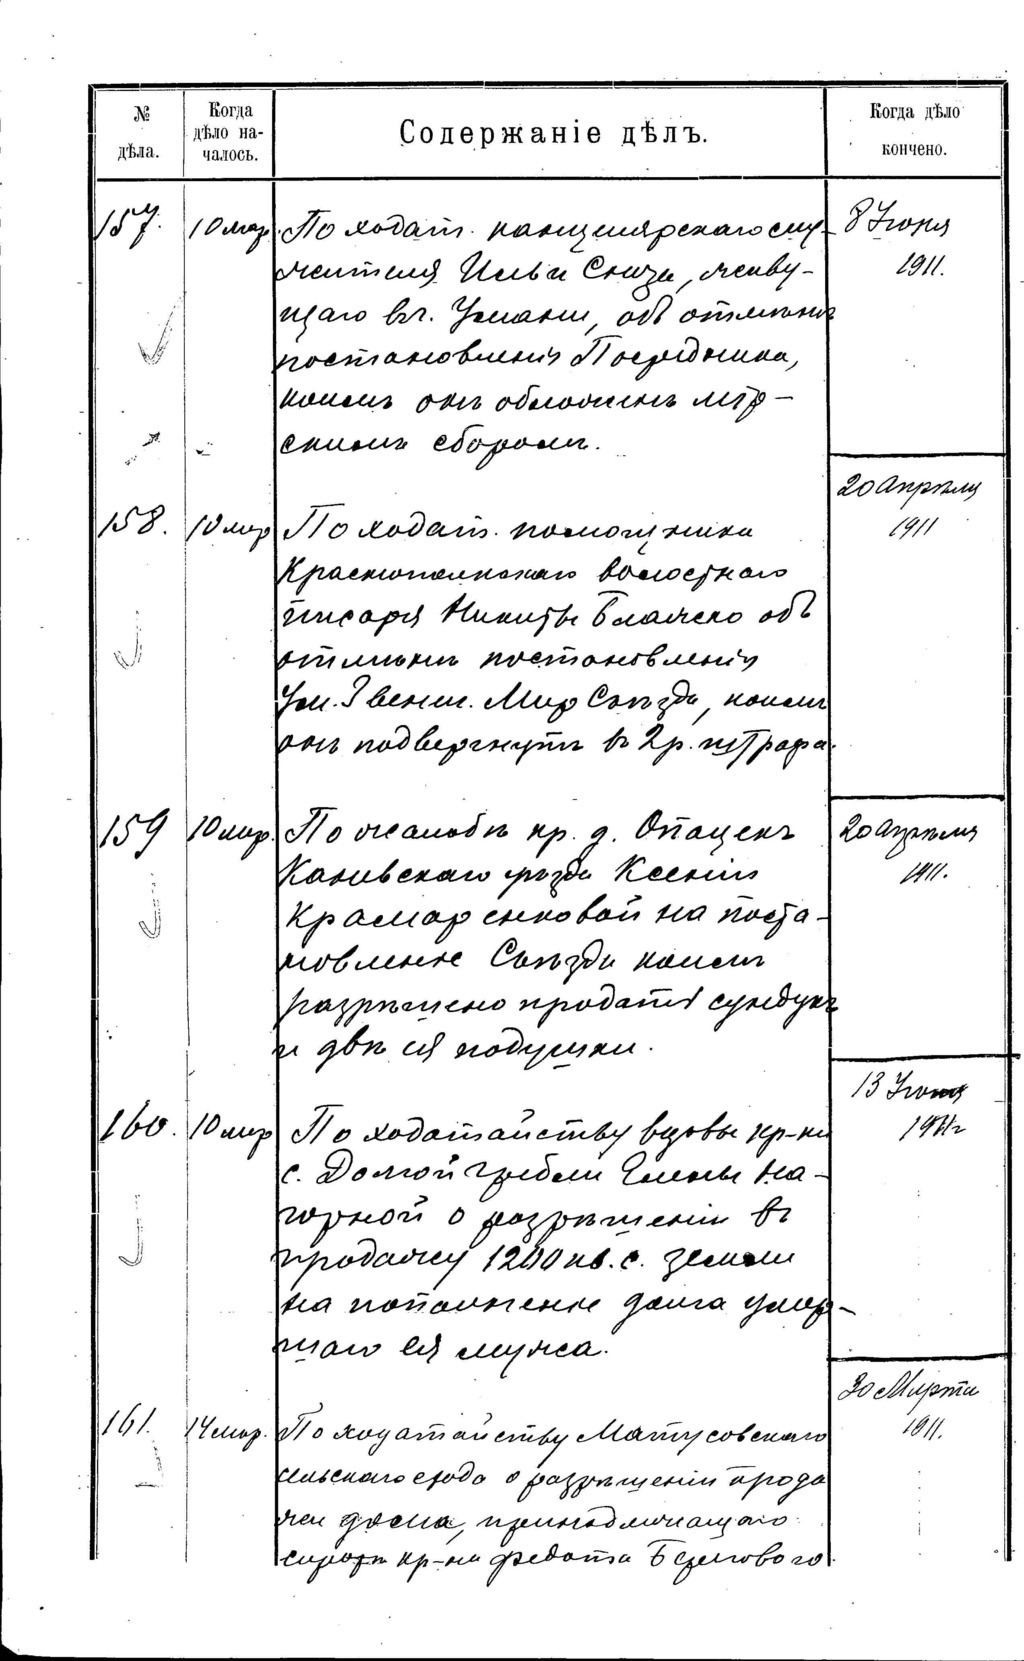 № дѣла.
Когда дѣло на-
чалось.
Содержаніе дѣлъ.
Когда дѣло
кончено.
157. 10 мар. По ходат. канцелярскаго слу- 8 Іюня
жителя Ильи Сню, живу- 1911.
щаго в г. Умани, объ отмѣнѣ
постановленія Посредника,
коимъ онъ обложенъ мір-
скимъ сборомъ.
20 Апрѣля
158. 10 мар По ходат. помощника 1911
Краснопольскаго волостного
писаря Никиты Блажко объ
отмѣнѣ постановленія
Ум. Звениг. Мир Съѣзда, коимъ
онъ подвергнутъ в 2 р. штрафа.
159 10 мар. По жалобѣ кр. д. Опацекъ 20 Апрѣля
Каневскаго уѣзда Ксеніи 1911.
Крамаренковой на поста-
новленіе Съѣзда коимъ
разрѣшено продать сундукъ
и двѣ ея подушки.
13 Іюня
160. 10 мар По ходатайству вдовы кр-ки 1911 г
с. Долгой Гребли Елены На-
горной о разрѣшеніи въ
продажу 1200 кв. с. земли
на пополненіе долга умер-
шаго ея мужа.
30 Марта
161. 14 мар. По ходатайству Матусовскаго 1911.
сельскаго схода о разрѣшеніи прода
жи дома, принадлежащаго
сиротѣ кр-на Федота Берегового